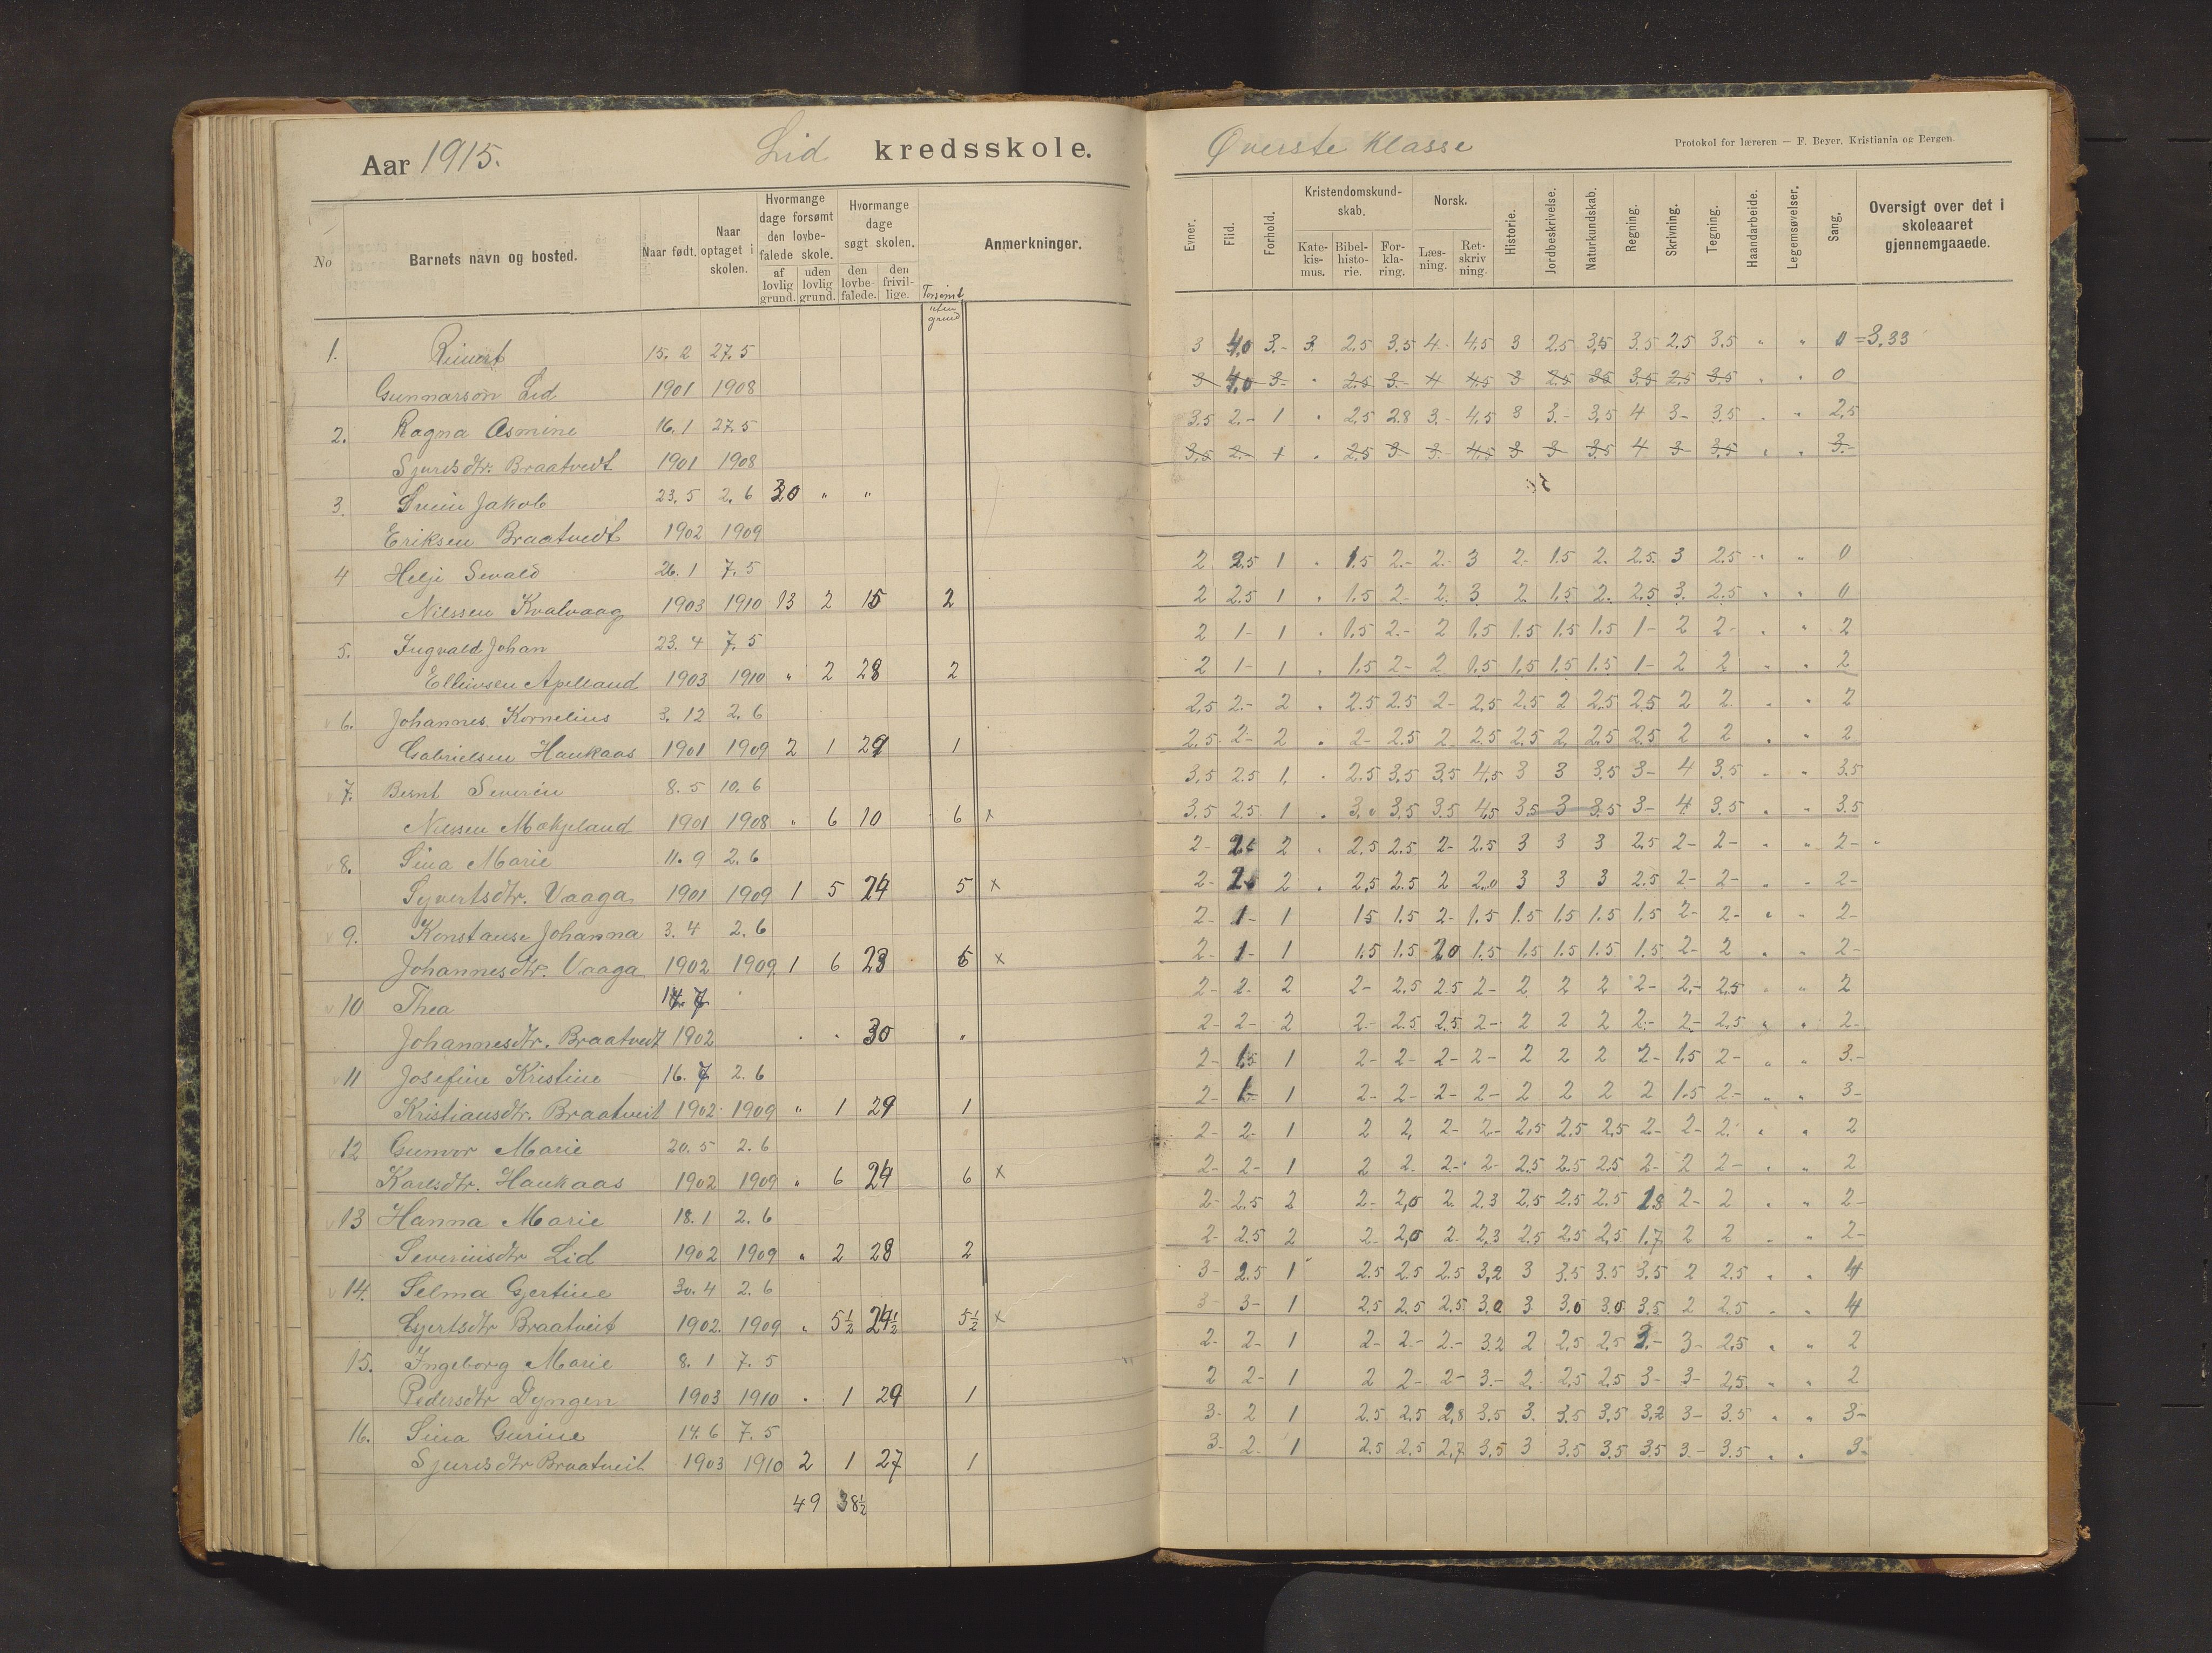 Aar 1915.
Lid kredsskole.
No
Barnets navn og bosted.
Naar født.
Naar optaget i skolen.
Hvormange dage forsømt den lovbefalede skole.
af lovlig grund.
uden lovlig grund.
Hvormange dage søgt skolen.
den lovbefalede.
den frivillige.
Forsømt uten grund
Anmerkninger.
1. Reinert 15. 2 27. 5
Gunnarson Lid 1901 1908
2. Ragna Asmine 16. 1 27. 5
Sjursdtr. Braatvedt 1901 1908
3. Svein Jakob 23. 5 2. 6 30 " "
Eriksen Braatvedt 1902 1909
4 Helje Sevald 26. 1 7. 5
Nilssen Kvalvaag 1903 1910 13 2 15 2
5. Ingvald Johan 23. 4 7. 5
Elleivsen Apelland 1903 1910 " 2 28 2
6. Johannes Kornelius 3. 12 2. 6
Gabrielsen Haukaas 1901 1909 2 1 29 1
7. Bernt Severin 8. 5 10. 6
Nilssen Mækjeland 1901 1908 " 6 10 6 x
8. Sina Marie 11. 9 2. 6
Syvertsdtr. Vaaga 1901 1909 1 5 24 5 x
9. Konstanse Johanna 3. 4 2. 6
Johannesdtr. Vaaga 1902 1909 1 6 23 6 x
10 Thea 14. 7
Johannesdtr. Braatvedt 1902 " " 30 "
11 Josefine Kristine 16. 7 2. 6
Kristiansdtr. Braatveit 1902 1909 " 1 29 1
12 Gunvor Marie 20. 5 2. 6
Karlsdtr. Haukaas 1902 1909 " 6 24 6 x
13 Hanna Marie 18. 1 2. 6
Severinsdtr Lid 1902 1909 " 2 28 2
14. Selma Gjertine 30. 4 2. 6
Gjertsdtr Braatveit 1902. 1909 " 5½ 24½ 5½ x
15. Ingeborg Marie 8. 1 7. 5
Pedersdtr Dyngen 1903 1910 . 1 29 1
16. Sina Gurine 14. 6 7. 5
Sjursdtr Braatveit 1903 1910 2 1 27 1
49 38½
Øverste Klasse
Protokol for læreren — F. Beyer, Kristiania og Bergen.
Evner.
Flid.
Forhold.
Kristendomskundskab.
Katekismus.
Bibelhistorie.
Forklaring.
Norsk.
Læsning.
Retskrivning.
Historie.
Jordbeskrivelse.
Naturkundskab.
Regning.
Skrivning.
Tegning.
Haandarbeide.
Legemsøvelser.
Sang.
Oversigt over det i skoleaaret gjennemgaaede.
3 4,0 3.- 3. 2.5 3.5 4- 4.5 3 2.5 3,5 3.5 2,5 3,5 " " 0 =3,33
3 4,0 3- " 2.5 3.- 4 4.5 3 2.5 3.5 3.5 2.5 3.5 " " 0
3.5 2.- 1 " 2,5 2.8 3.- 4.5 3 3.- 3,5 4 3- 3.5 " " 2,5
3,5 2.- 1 " 2.5 3- 3- 4.5 3 3 3.5 4 3- 3,5 " " 3.-
2 2.5 1 " 1.5 2.- 2- 3 2- 1.5 2. 2.5. 3 2.5 " " 0
2 2.5 1 " 1.5 2- 2. 3 2 1.5 2. 2,5 3. 2.5 " " 0
2 1- 1 " 1.5 2.- 2 1.5 1.5 1.5 1.5 1- 2 2- " " 2
2 1- 1 " 1.5 2- 2 1.5 1.5 1.5 1.5 1- 2 2 " " 2
2,5 2.- 2 " 2.5 2.5 2- 2,5 2,5 2 2.5 2,5 2 2. " " 2
2,5 2- 2 " 2- 2.5 2 2.5 2.5 2 2,5 2.5 2 2 " " 2
3.5 2.5 1. " 2.5 3.5 3.5 4.5 3 3 3.5 3- 4 3.5 " " 3.5
3.5 2.5 1 " 3.0 3.5 3.5 4.5 3.5 3 3.5 3- 4 3.5 " " 3.5
2- 2.5 2 " 2.5 2.5 2- 2.5 3 3 3 2.5 2- 2- " " 2-
2- 2.5 2 " 2,5 2.5 2 2.0 3 3 3 2.5 2- 2- " " 2-
2- 1- 1 1.5 1.5 2- 1.5 1.5 1.5 1.5 1.5 2- 2- " " 2-
2- 1- 1 1.5 1.5 2.0 1.5 1.5 1.5 1.5 1.5 2- 2 " " 2-
2- 2- 2 2- 2.5 2.5 2- 2 2 2 2- 2.- 2,5 " " 2
2- 2- 2 2.- 2.5 2,5 2- 2 2 2 2.- 2- 2.5 " " 2-
2- 1.5 1 2- 2- 2- 2- 2 2 2 2- 1.5 2- " " 3.-
2- 1- 1 2- 2- 2- 2- 2 2 2 2 1.5 2- " " 3-
2- 2- 1 2 2, 2- 2- 2,5 2.5 2,5 2- 2- 2. " " 2
2- 2- 1 2 2. 2.- 2- 2.5 2.5 2.5 2- 2 2- " " 2
2- 2.5 2 2- 2,0 2. 2.3 2.5 2.5 2.5 1.8 2- 2 " " 2-
2- 2.5 2 2- 2,0 2- 2,3 2.5 2.5 2,5 1.7 2 2 " " 2-
3- 2.5 1 2.5 2.5 2.5 3,2 3 3.5 3.5 3.5 2 2.5 " " 4
3- 3- 1 2.5 2.5 2.5 3.0 3 3.0 3.0 3.5 2 2.5 " " 4
2- 2- 1 2- 2.- 2.- 3.2 2 2,5 2,5 3.- 3- 2,5 " " 2
2 2- 1 2 2- 2- 3.- 2. 2,5 2.5 3- 3- 2,5 " " 2
3- 2 1 2.5 2,5 2,8 3,5 3. 3.5 3,5 3,2 3- 3.5 " " 3-
3- 2. 1 2.5 2.5 2,7 3,5 3 3.5 3,5 3.5 3.- 3.5 " " 3-